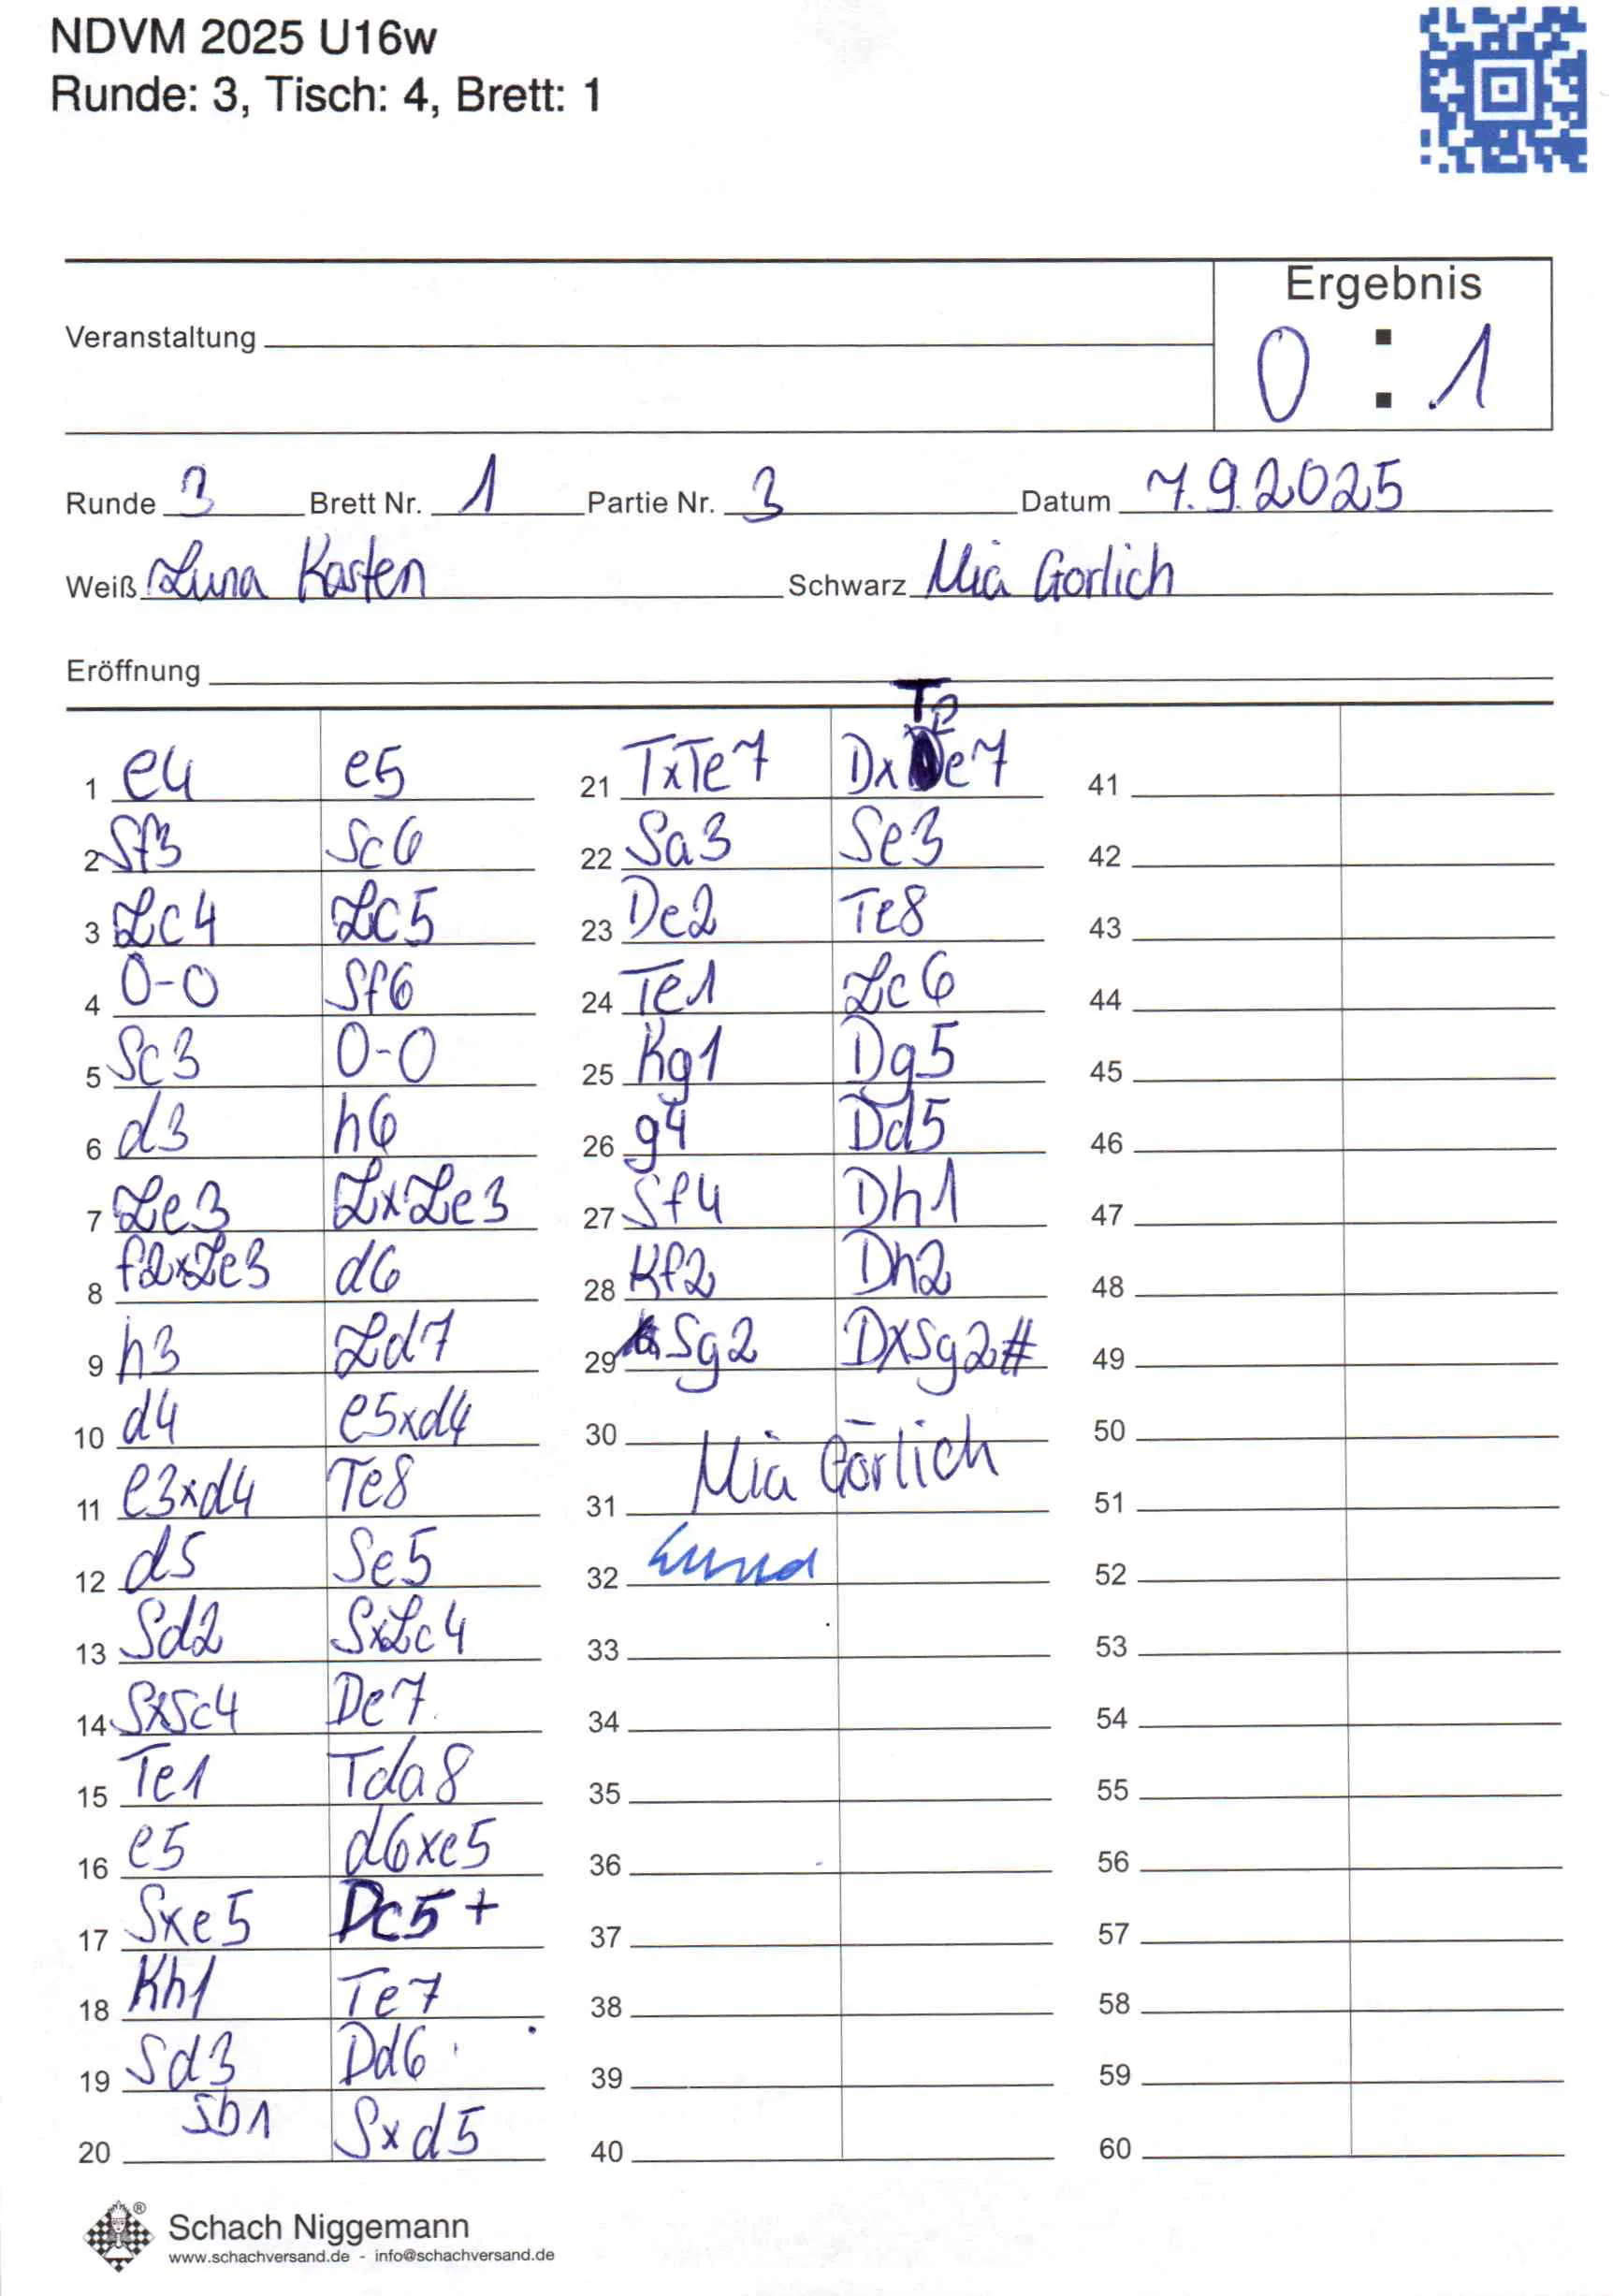 NDVM 2025 U16w
Runde: 3, Tisch: 4, Brett: 1
Ergebnis
Veranstaltung
0 : 1
Runde 3 Brett Nr. 1 Partie Nr. 3 Datum 7.9.2025
Weiß Luna Kasten Schwarz Mia Gorlich
Eröffnung
1 e4 e5
2 Sf3 Sc6
3 Lc4 Lc5
4 0-0 Sf6
5 Sc3 0-0
6 d3 h6
7 Le3 LxLe3
8 f2xLe3 d6
9 h3 Ld7
10 d4 e5xd4
11 e3xd4 Te8
12 d5 Se5
13 Sd2 SxLc4
14 SxSc4 De7
15 Te1 Tda8
16 e5 d6xe5
17 Sxe5 Dc5+
18 Kh1 Te7
19 Sd3 Dd6
20 Sb1 Sxd5
21 TxTe7 DxTe7
22 Sa3 Se3
23 De2 Te8
24 Te1 Lc6
25 Kg1 Dg5
26 g4 Dd5
27 Sf4 Dh1
28 Kf2 Dh2
29 Sg2 DxSg2#
30
31 Mia Görlich
32 Luna
33
34
35
36
37
38
39
40
41
42
43
44
45
46
47
48
49
50
51
52
53
54
55
56
57
58
59
60
Schach Niggemann
www.schachversand.de - info@schachversand.de